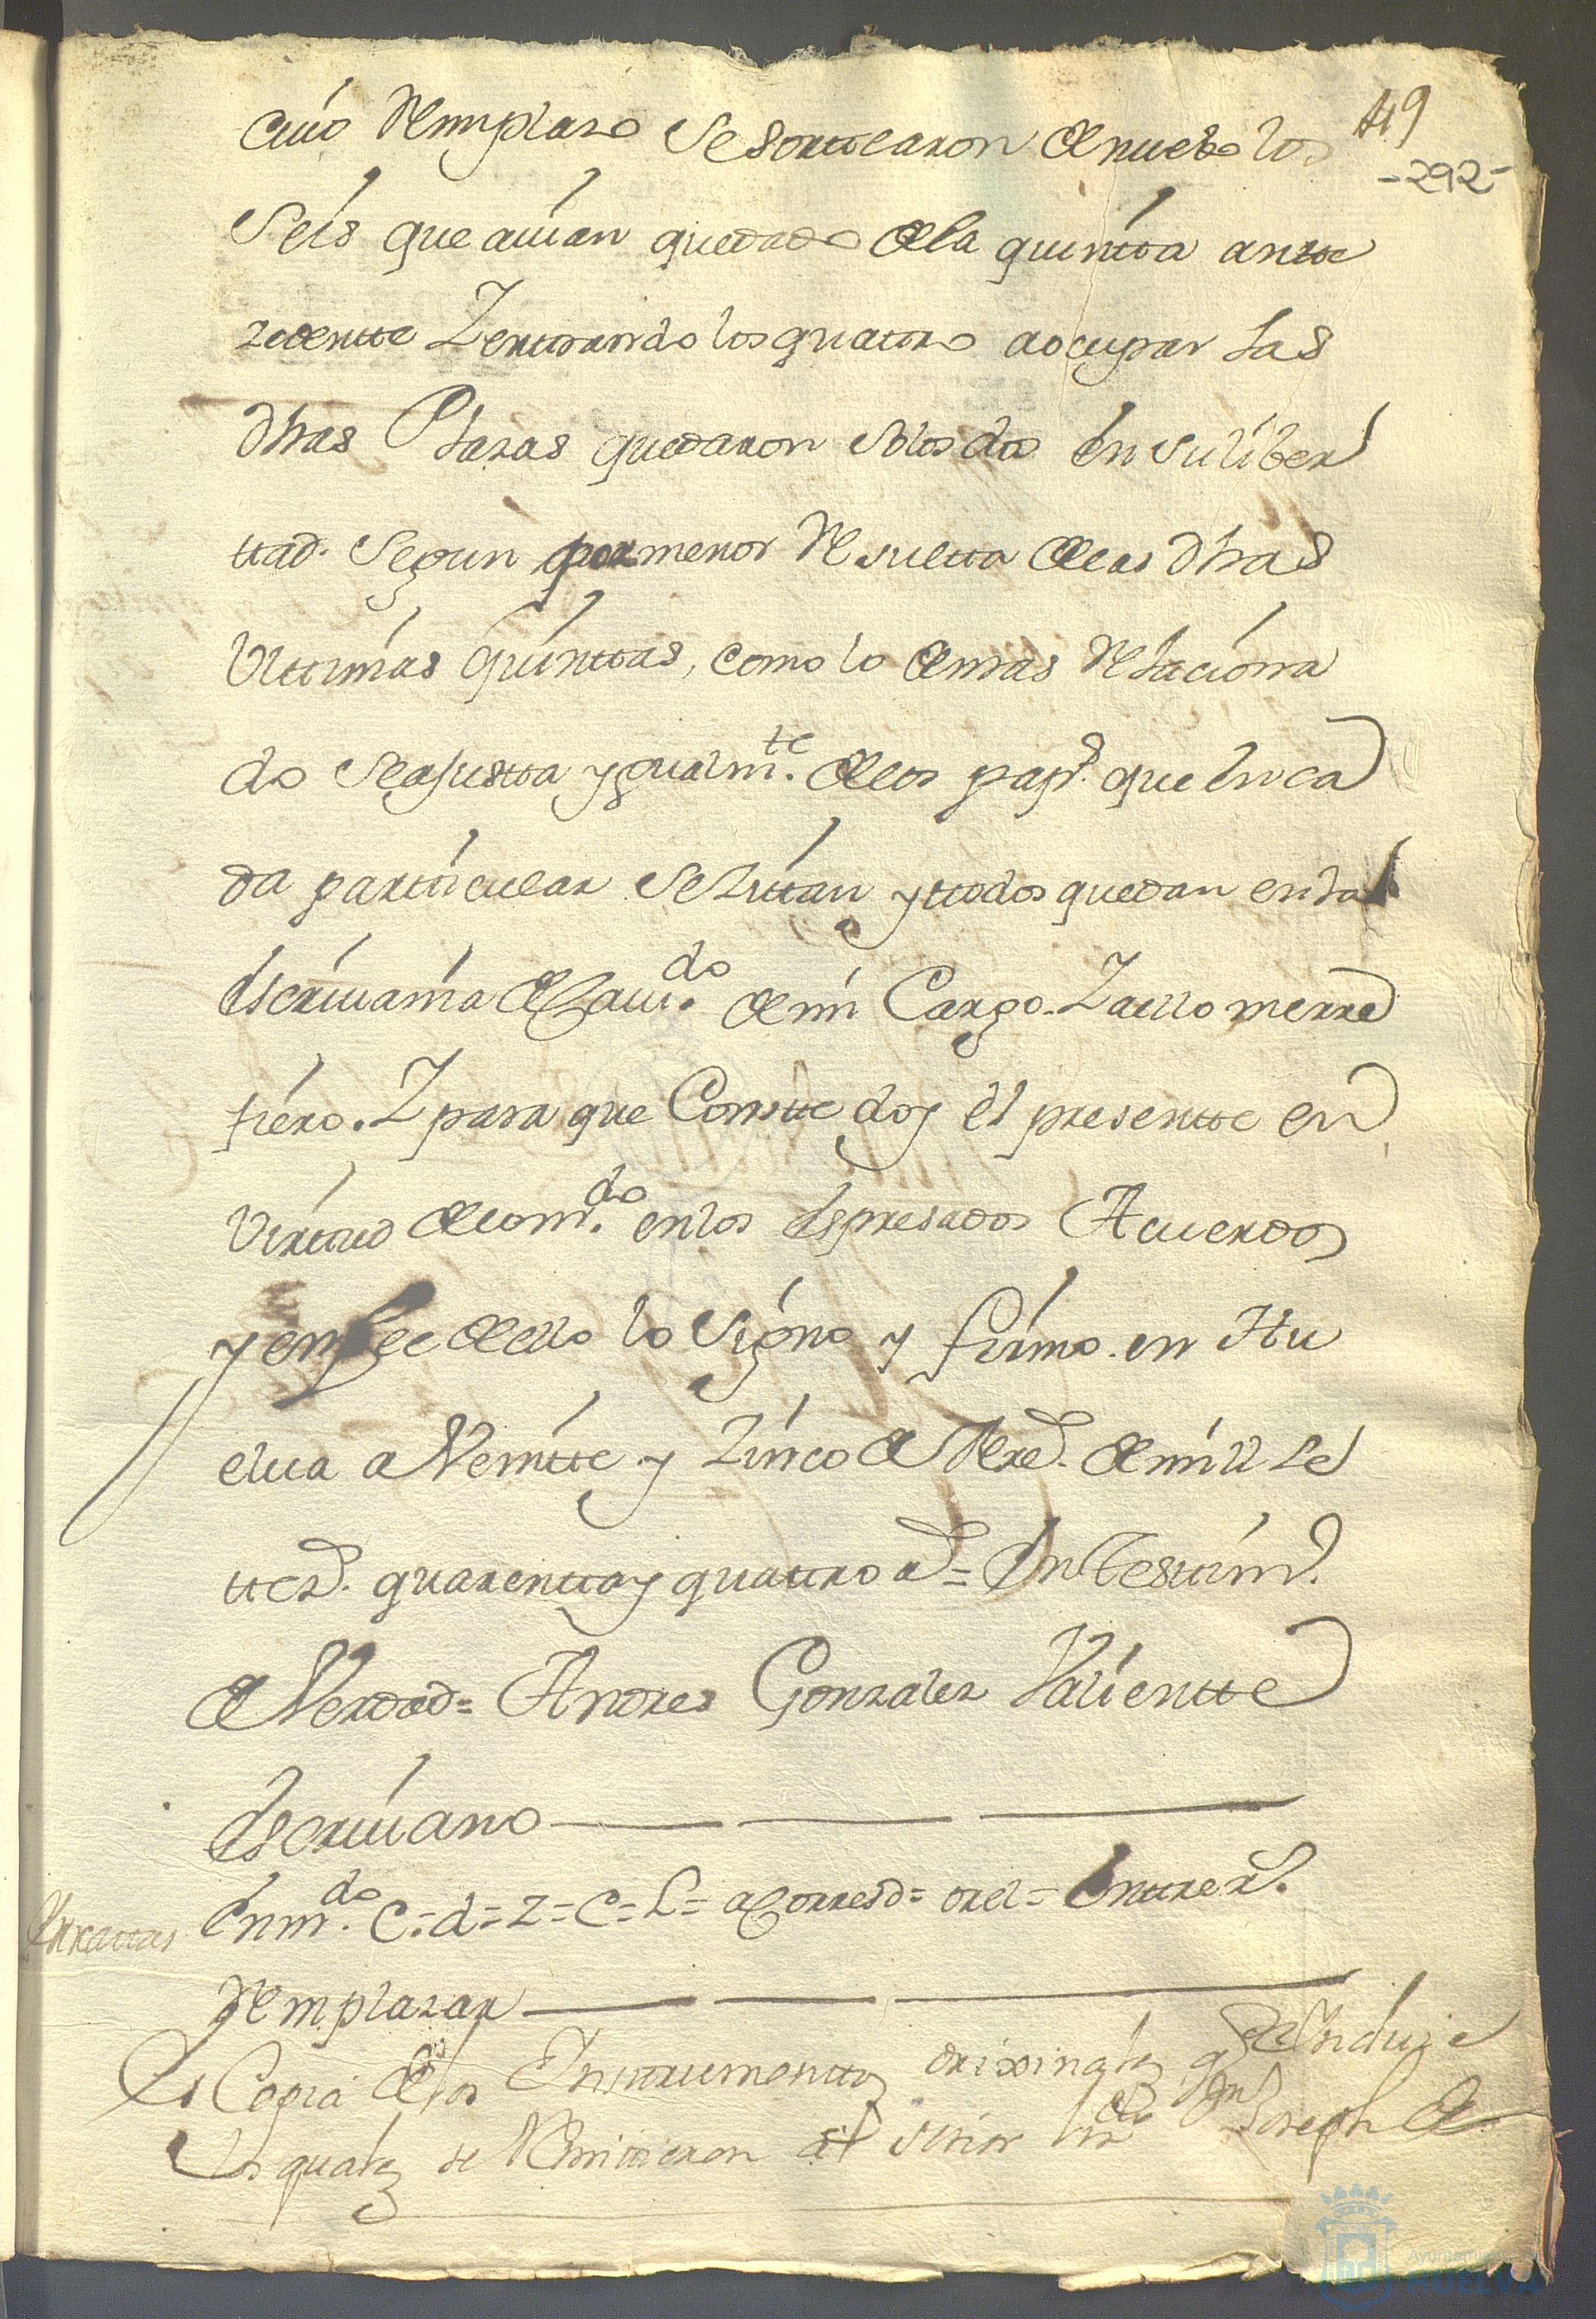 49
-292-
cuio Remplazo se sorttearon de nuebo los
Seis que auian quedado de la quintta antte
zedentte Y enttrando los quattro a ocupar las
dhas Plazas quedaron solos dos en su liber
ttad. Segun por menor Resultta de las dhas
Vlttimas quinttas, como lo demas Relaciona
do se ajustta ygualmte. de los paps. que en ca
da partticular se zittan y ttodos quedan en la
escriuania de Cauido. de mi Cargo. Y a ello me rre
fiero. Y para que Constte doy el presentte en
Virttud de lo mdo. en los espresados Acuerdos
y en fee de ello lo signo y firmo. en Hu
elua a Veintte y Zinco de Henro. de mill se
ttezs. quarentta y quattro as = En Testtimo.
de Verdad = Andres Gonzalez Valientte
Escriuano
Enmdo. c = d = z = c = L = a Corresd = orel = Enttre Rs.
Remplazar
Es Copia de los Instrumenttos orixinales q se Induje
los quales se Remitieron al señor Dn Joseph de
Ayuntamiento
HUELVA